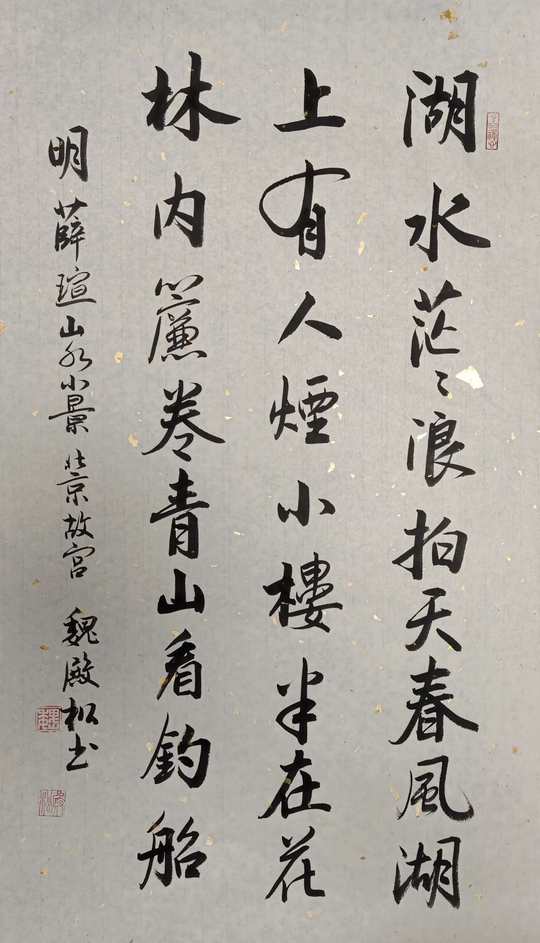 湖水茫〻浪拍天春風湖
上有人煙小樓半在花
林内簾卷青山看釣船
明薛瑄山水小景北京故宫 魏殿松书